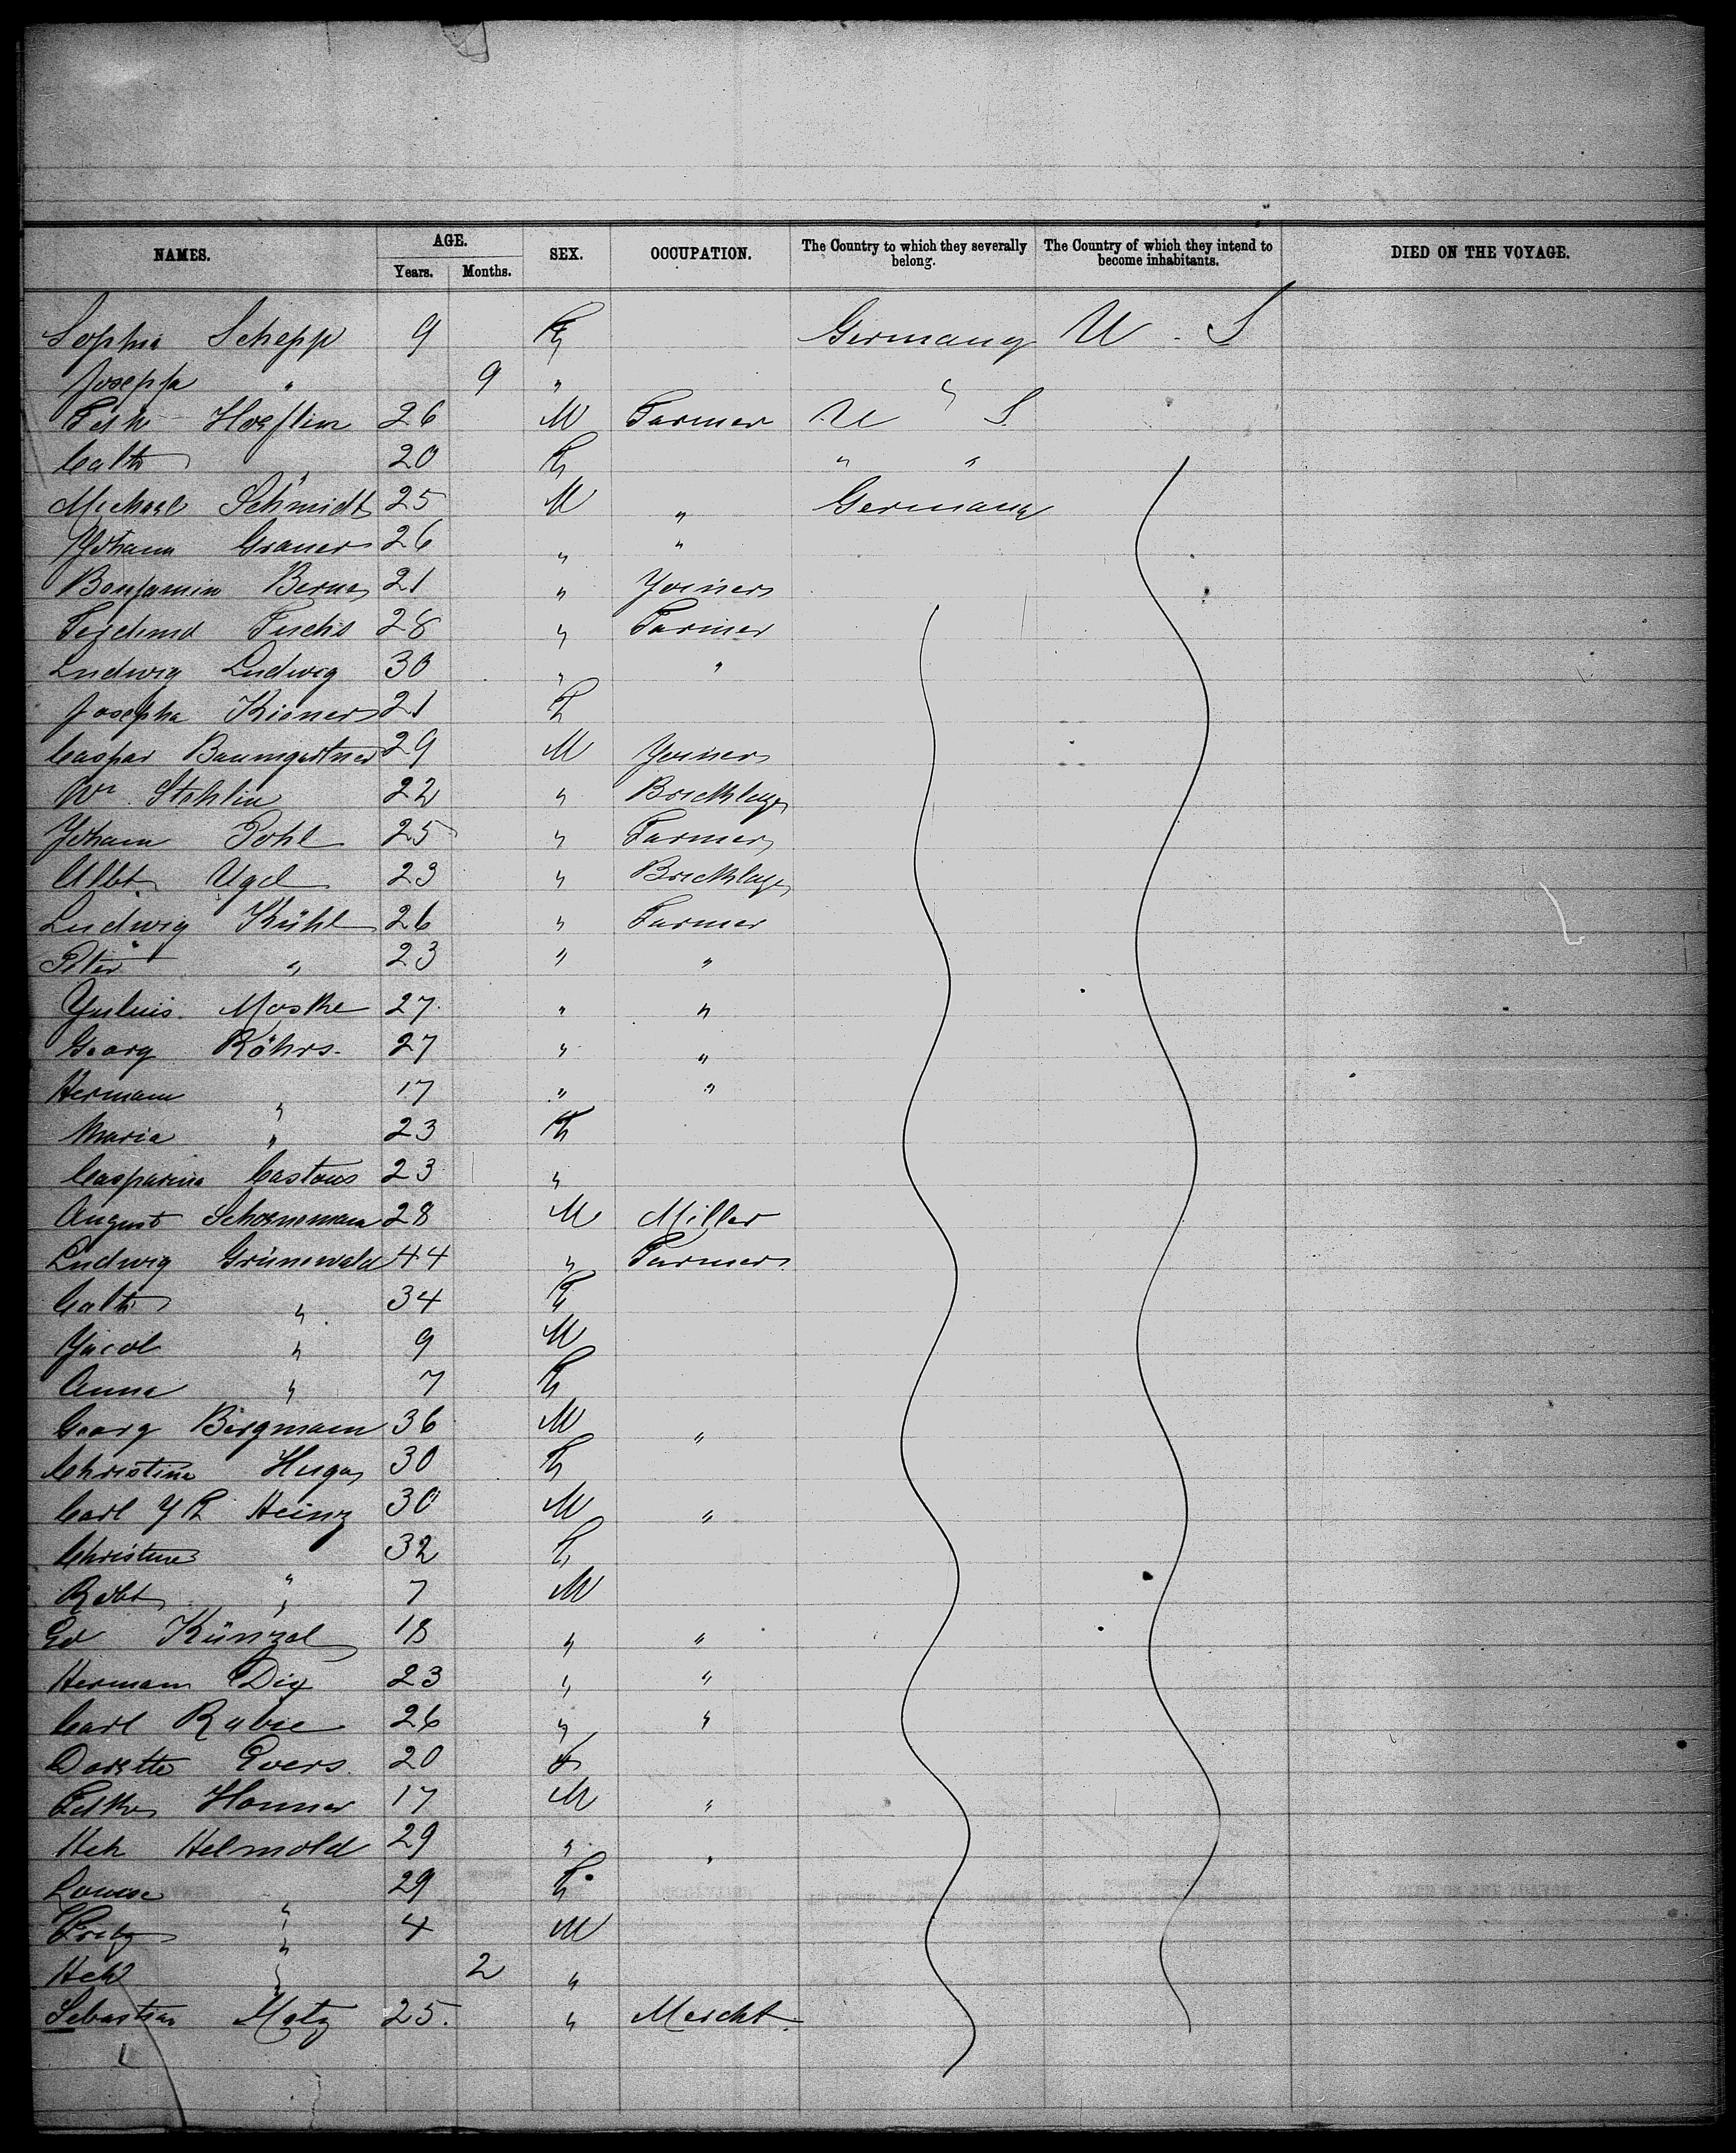 NAMES. AGE. SEX. OCCUPATION. The Country to which they severally belong. The Country of which they intend to become inhabitants. DIED ON THE VOYAGE.
Years. Months.
Sophia Schepp 9 F Germany U. S
Josepha " 9 " "
Hoeflin 26 M Farmer U S
Cath " 20 F " "
Michael Schmidt 25 M " Germany
Johann Graner 26 " "
Benjamin Berna 21 " Joiner
Ferdinand Fuchs 28 " Farmer
Ludwig Ludwig 30 " "
Josepha Kiener 21 F
Caspar Baumgartner 29 M Joiner
Wm Stehlin 22 " Bricklayer
Johann Pohl 25 " Farmer
Albt. Ugel 23 " Bricklayer
Ludwig Kühl 26 " Farmer
Peter " 23 " "
Julius Moske 27 " "
Georg Röhrs 27 " "
Hermann " 17 " "
Maria " 23 F
Casparina Castous 23 "
August Schoenemann 28 M Miller
Ludwig Grünewald 44 " Farmer
Cath " 34 F
Jacob " 9 M
Anna " 7 F
Georg Bergmann 36 M "
Christine 30 F
Carl Heinz 30 M "
Christine " 32 F
Robt " 7 M
Ed Künzel 18 " "
Hermann Dix 23 " "
Carl Rabie 26 " "
Dorette Evers 20 F
Honner 17 M "
Hch Helmold 29 " "
Louise " 29 F
Fritz " 4 M
Hch " 2 "
Sebastian Metz 25. " Mercht.